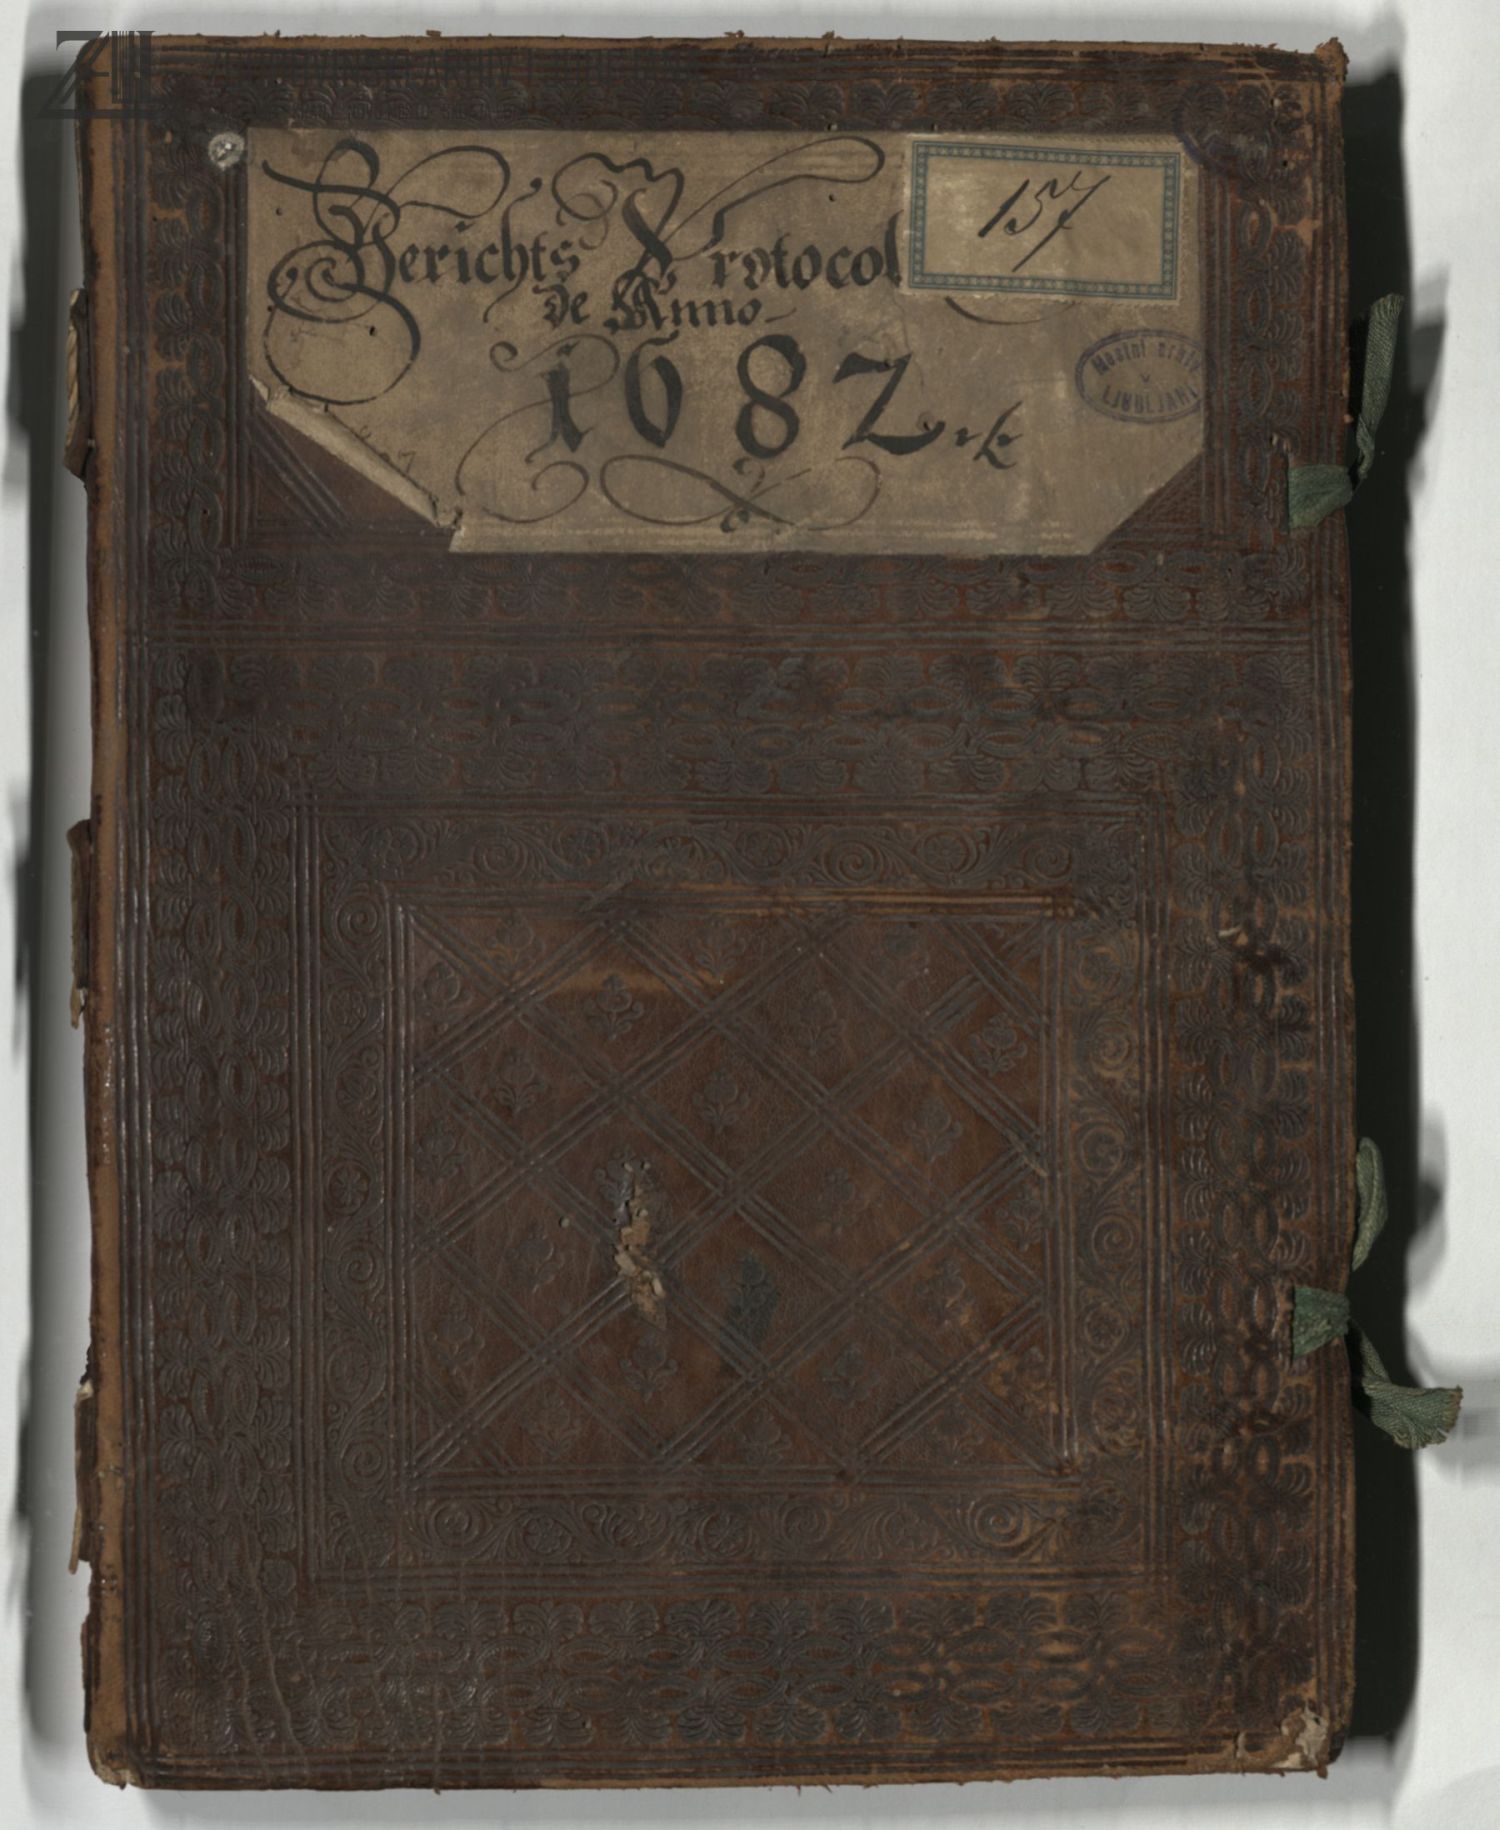 Gerichts Protocol
de Anno
1682
157
Mestni arhiv
v
LJUBLJANI
ZAL